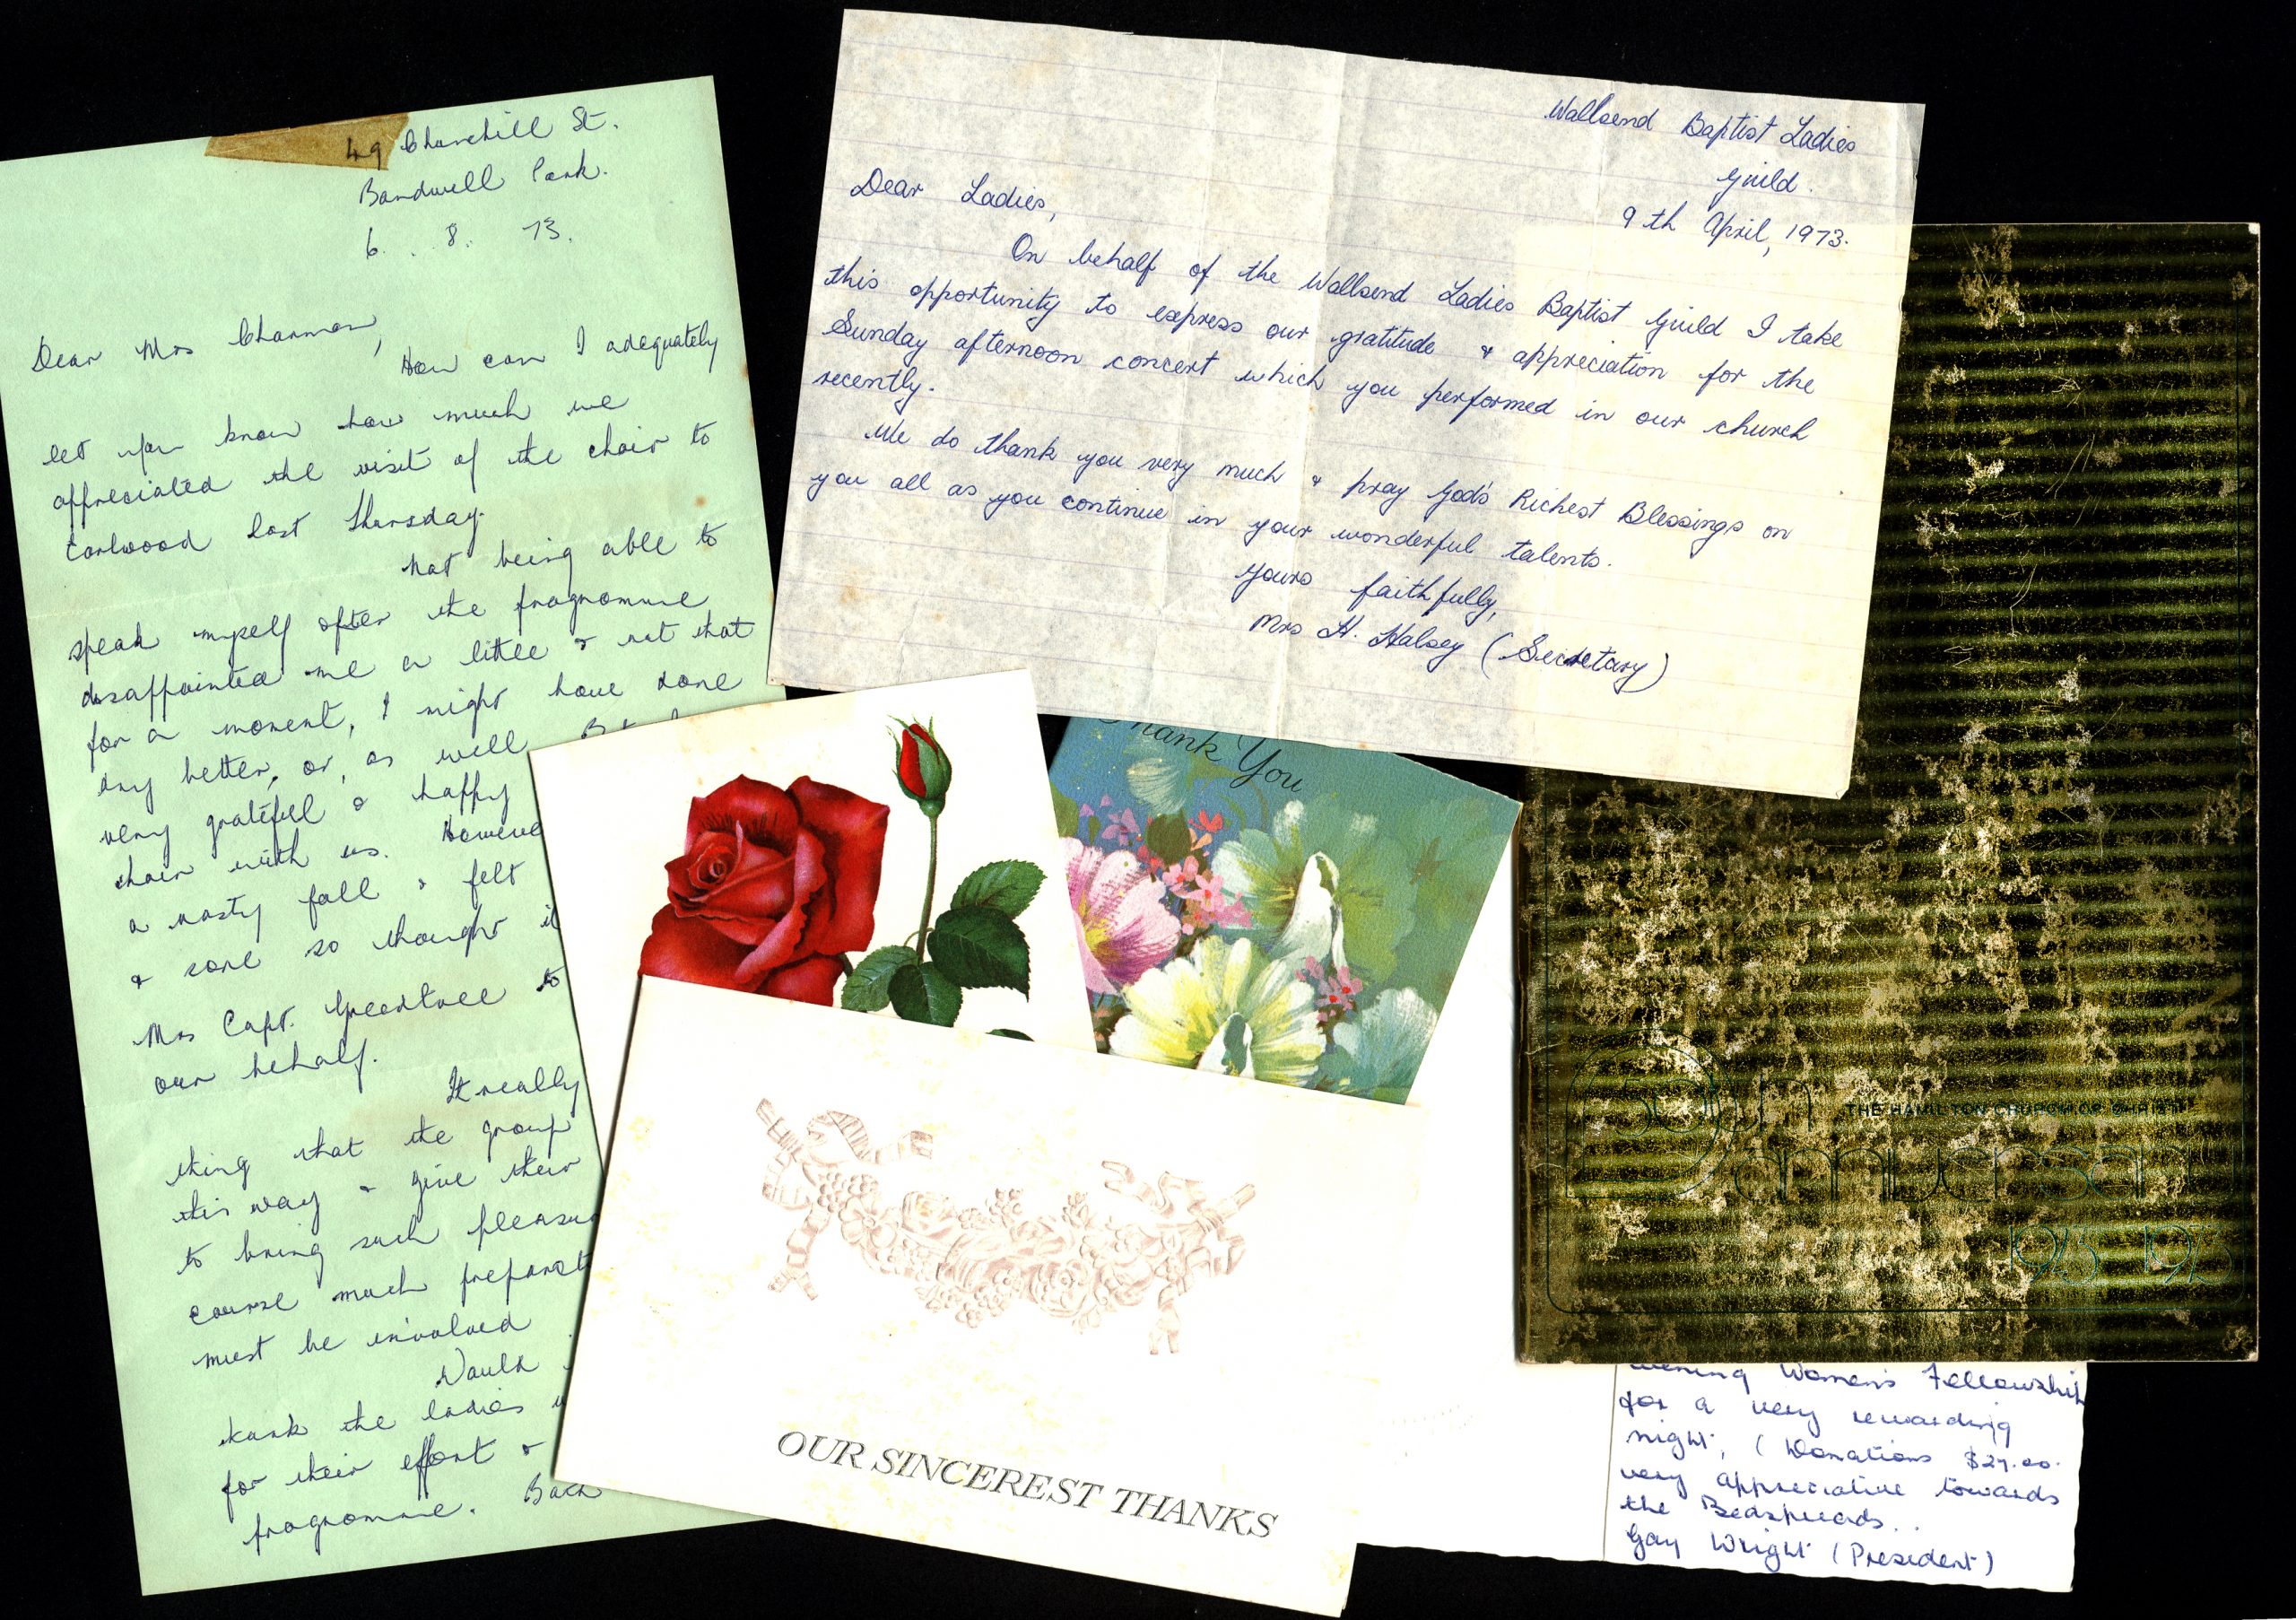 49 Churchill St.
Bardwell Park.
6. 8. 73.
Dear Mrs Charman,
How can I adequately
let you know how much we
appreciated the visit of the choir to
Earlwood last Thursday.
Not being able to
speak myself after the programme
disappointed me a little & not that
for a moment, I might have done
any better, or, as well.
very grateful & happy
choir with us. However
a nasty fall & felt
& sore so thought it
Mrs Capt. Greentree to
our behalf.
It really
thing that the group
this way & give their
to bring such pleasu
course much preparat
must be involved
Would
thank the ladies
for their effort &
programme. Back
Wallsend Baptist Ladies
Guild.
9th April, 1973.
Dear Ladies,
On behalf of the Wallsend Ladies Baptist Guild I take
this opportunity to express our gratitude & appreciation for the
Sunday afternoon concert which you performed in our church
recently.
We do thank you very much & pray God's Richest Blessings on
you all as you continue in your wonderful talents.
Yours faithfully,
Mrs H. Halsey (Secretary)
Thank You
OUR SINCEREST THANKS
THE HAMILTON CHURCH OF CHRIST
anniversary
evening Women's Fellowship
for a very rewarding
night, (Donations
very appreciative towards
the Bedspreads..
Gay Wright (President)